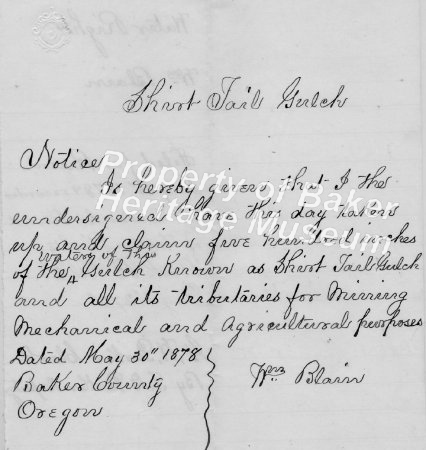 Shirt Tail Gulch
Notice
Is hereby given that I the
undersigned have this day taken
up and claim five hundred inches
of the waters of the Gulch Known as Shirt Tail Gulch
and all its tributaries for Mining
Mechanical and Agricultural purposes
Dated May 30" 1878
Baker County
Oregon
Wm Blain
Property of Baker
Heritage Museum